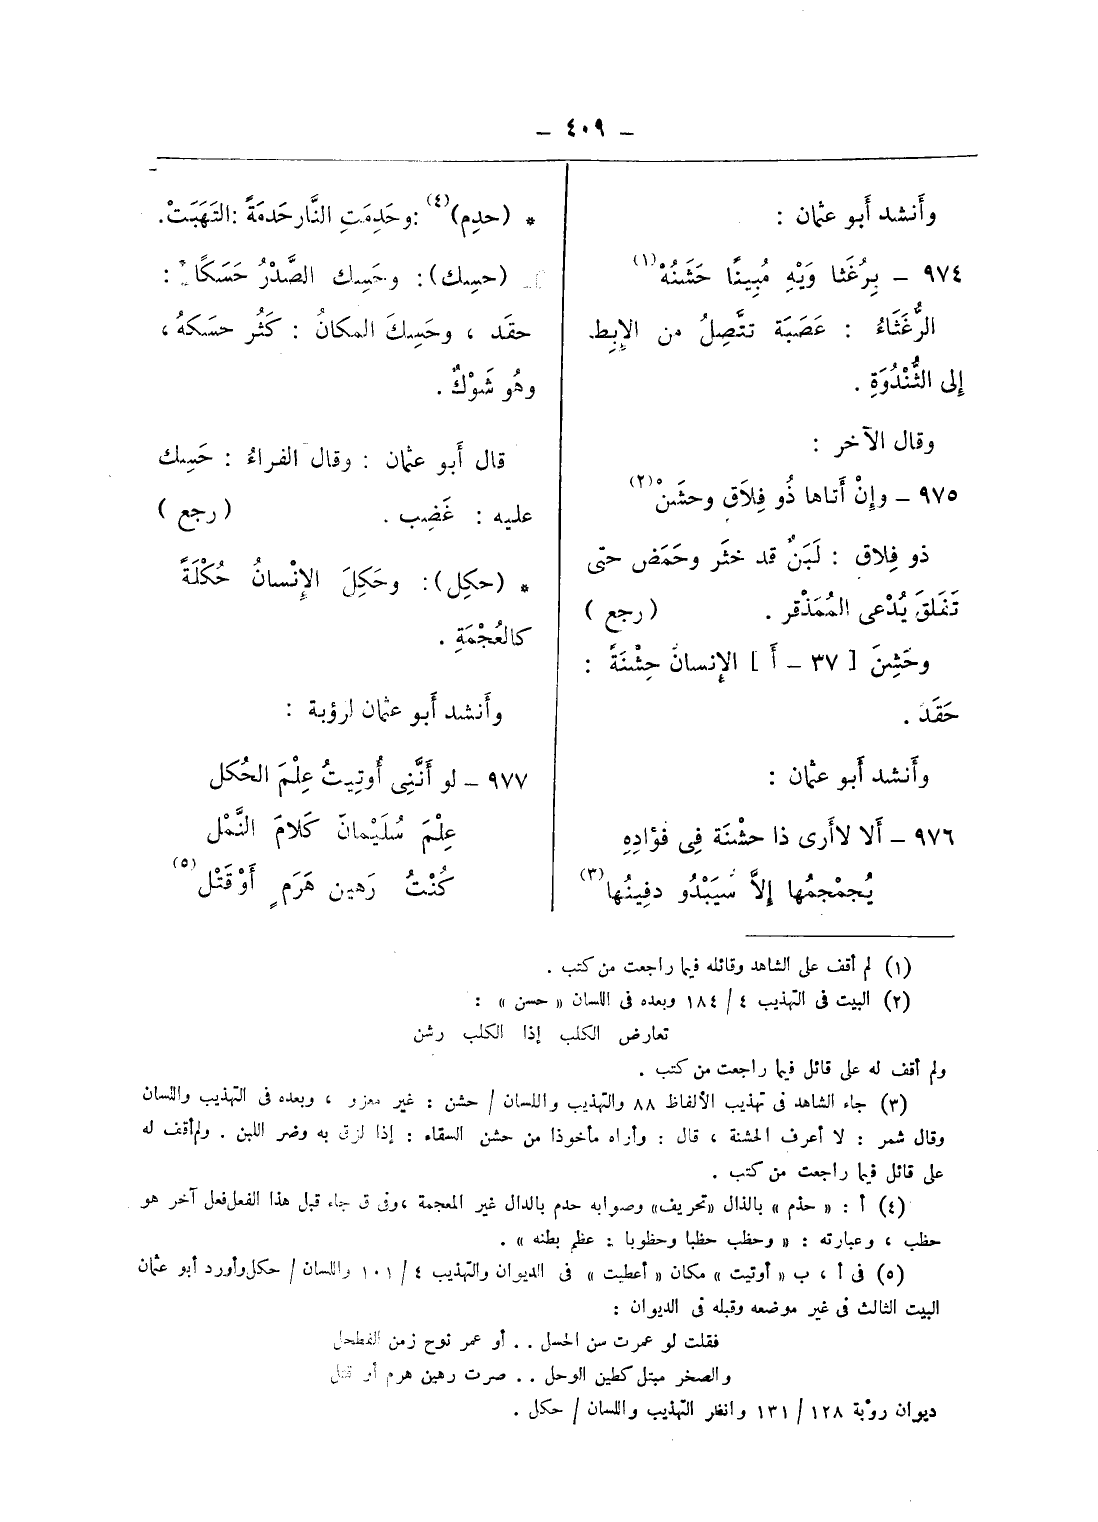 — ٤٠٩ —
وأَنشد أَبو عثمان :
٩٧٤ – بِرُغَثا وَيْهِ مُبِينًا حَشَنُهْ(١)
الرُّغَثَاءُ : عَصَبَة تتَّصِلُ من الإِبِط
إلى الثُّنْدُوَةِ .
وقال الآخر :
٩٧٥ – وإِنْ أَتاها ذُو فِلَاقٍ وحشَنْ(٢)
ذو فِلاق : لَبَنٌ قد خثَر وحَمَض حتى
تَفَلقَ يُدْعى المُمَذْقر . ( رجع )
وحَشِنَ [ ٣٧ – أَ ] الإِنسانُ حِشْنَةً :
حَقَدَ .
وأَنشد أَبو عثمان :
٩٧٦ – أَلا لا أَرى ذا حشْنَة فِى فؤادِهِ
يُجمْجمُها إِلاَّ سَيَبْدُو دفِينُها(٣)
* (حدِم)(٤) : وحَدِمَتِ النَّار حَدمَةً : التَهَبَتْ.
(حسِك): وحَسِك الصَّدْرُ حَسَكًا :
حقَد ، وحَسِكَ المكانُ : كَثُر حسَكهُ ،
وهُو شَوْكٌ .
قال أَبو عثمان : وقال الفراءُ : حَسِك
عليه : غَضِب . ( رجع )
* (حكِل): وحَكِلَ الإِنْسانُ حُكْلَةً
كالعُجْمَةِ .
وأَنشد أَبو عثمان لرؤبة :
٩٧٧ – لو أَنَّنِى أُوتِيتُ عِلْمَ الحُكل
عِلْمَ سُلَيْمانَ كَلامَ النَّمْل
كُنْتُ رَهين هَرَمٍ أَوْ قَتْل(٥)
(١) لم أقف على الشاهد وقائله فيما راجعت من كتب .
(٢) البيت فى التهذيب ٤ / ١٨٤ وبعده فى اللسان « حسن » :
تعارض الكلب إذا الكلب رشن
ولم أقف له على قائل فيما راجعت من كتب .
(٣) جاء الشاهد فى تهذيب الألفاظ ٨٨ والتهذيب واللسان / حشن : غير معزو ، وبعده فى التهذيب واللسان
وقال شمر : لا أعرف الحشنة ، قال : وأراه مأخوذا من حشن السقاء : إذا لزق به وضر اللبن . ولم أقف له
على قائل فيما راجعت من كتب .
(٤) أ : « حذم » بالذال «تحريف» وصوابه حدم بالدال غير المعجمة ، وفى ق جاء قبل هذا الفعل فعل آخر هو
حظب ، وعبارته : « وحظب حظبا وحظوبا : عظم بطنه » .
(٥) فى أ ، ب « أوتيت » مكان « أعطيت » فى الديوان والتهذيب ٤ / ١٠١ واللسان / حكل وأورد أبو عثمان
البيت الثالث فى غير موضعه وقبله فى الديوان :
فقلت لو عمرت سن الحسل . . أو عمر نوح زمن الفطحل
والصخر مبتل كطين الوحل . . صرت رهين هرم أو قتل
ديوان رؤبة ١٢٨ / ١٣١ وانظر التهذيب واللسان / حكل .